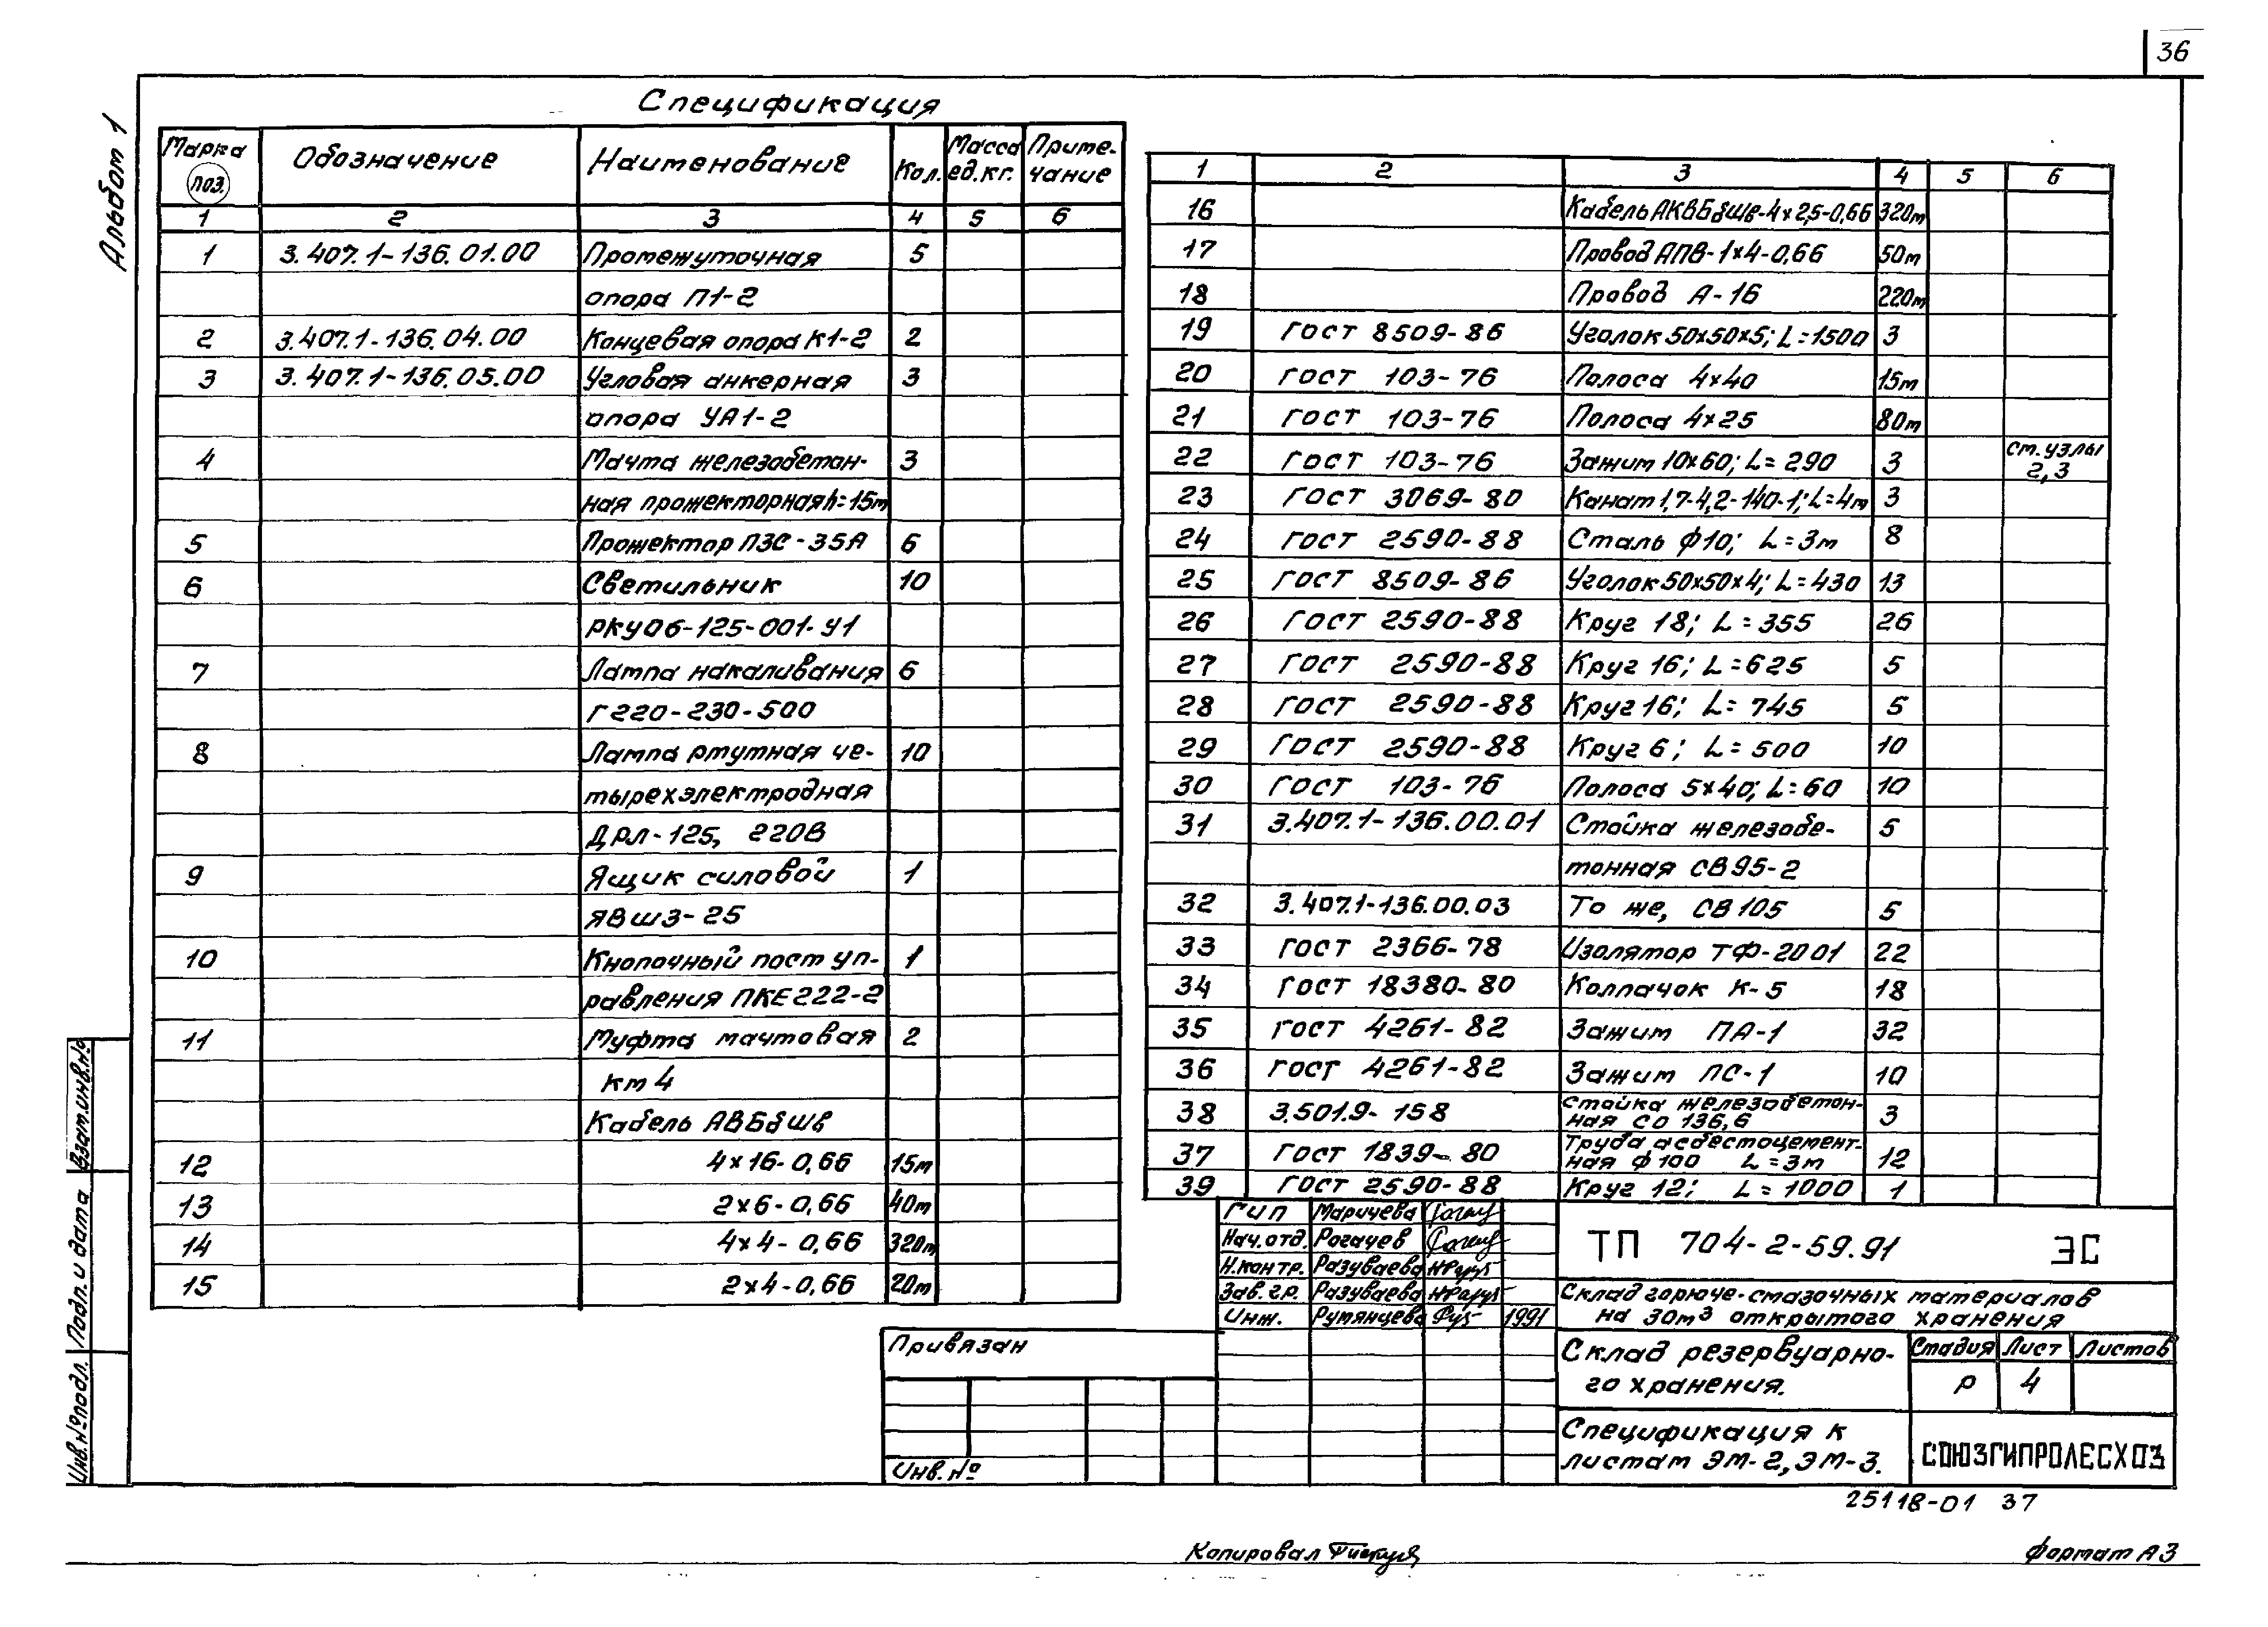 36
Альбом 1
Спецификация
Марка поз. Обозначение Наименование Кол. Масса ед.кг. Примечание
1 2 3 4 5 6
1 3.407.1-136.01.00 Промежуточная 5
опора П1-2
2 3.407.1-136.04.00 Концевая опора К1-2 2
3 3.407.1-136.05.00 Угловая анкерная 3
опора УА1-2
4 Мачта железобетон- 3
ная прожекторная h=15м
5 Прожектор ПЗС-35А 6
6 Светильник 10
РКУ06-125-001-У1
7 Лампа накаливания 6
Г220-230-500
8 Лампа ртутная че- 10
тырехэлектродная
ДРЛ-125, 220В
9 Ящик силовой 1
ЯВШ3-25
10 Кнопочный пост уп- 1
равления ПКЕ222-2
11 Муфта мачтовая 2
КМ4
Кабель АВБбШв
12 4×16-0,66 15м
13 2×6-0,66 40м
14 4×4-0,66 320м
15 2×4-0,66 20м
1 2 3 4 5 6
16 Кабель АКВБбШв-4×2,5-0,66 320м
17 Провод АПВ-1×4-0,66 50м
18 Провод А-16 220м
19 ГОСТ 8509-86 Уголок 50×50×5; L=1500 3
20 ГОСТ 103-76 Полоса 4×40 15м
21 ГОСТ 103-76 Полоса 4×25 80м
22 ГОСТ 103-76 Зажим 10×60; L=290 3 см. узлы 2,3
23 ГОСТ 3069-80 Канат 1,7-4,2-140-1; L=4м 3
24 ГОСТ 2590-88 Сталь ф10; L=3м 8
25 ГОСТ 8509-86 Уголок 50×50×4; L=430 13
26 ГОСТ 2590-88 Круг 18; L=355 26
27 ГОСТ 2590-88 Круг 16; L=625 5
28 ГОСТ 2590-88 Круг 16; L=745 5
29 ГОСТ 2590-88 Круг 6; L=500 10
30 ГОСТ 103-76 Полоса 5×40; L=60 10
31 3.407.1-136.00.01 Стойка железобе- 5
тонная СВ95-2
32 3.407.1-136.00.03 То же, СВ105 5
33 ГОСТ 2366-78 Изолятор ТФ-2001 22
34 ГОСТ 18380-80 Колпачок К-5 18
35 ГОСТ 4261-82 Зажим ПА-1 32
36 ГОСТ 4261-82 Зажим ПС-1 10
38 3.501.9-158 Стойка железобетон- 3
ная СО 136,6
37 ГОСТ 1839-80 Труба асбестоцемент- 12
ная ф100 L=3м
39 ГОСТ 2590-88 Круг 12; L=1000 1
ГИП Маричева
Нач.отд. Рогачев
Н.контр. Разуваева
Зав.гр. Разуваева
Инж. Румянцева 1991
ТП 704-2-59.91 ЭС
Склад горюче-смазочных материалов
на 30м³ открытого хранения
Склад резервуарно-
го хранения.
Стадия Лист Листов
Р 4
Спецификация к
листам ЭМ-2, ЭМ-3.
СОЮЗГИПРОЛЕСХОЗ
Привязан
Инв.№
Взам.инв.№
Подп. и дата
Инв.№подл.
25118-01 37
Копировал
Формат А3